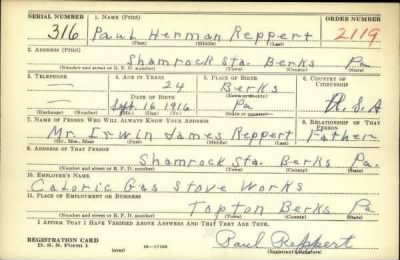 SERIAL NUMBER 1. NAME (Print) ORDER NUMBER
316 Paul Herman Reppert 2119
(First) (Middle) (Last)
2. ADDRESS (Print)
Shamrock Sta. Berks Pa
(Number and street or R. F. D. number) (Town) (County) (State)
3. TELEPHONE 4. AGE IN YEARS 5. PLACE OF BIRTH 6. COUNTRY OF CITIZENSHIP
— 24 Berks
DATE OF BIRTH (Town or county)
— Sept. 16 1916 Pa U.S.A
(Exchange) (Number) (Mo.) (Day) (Yr.) (State or country)
7. NAME OF PERSON WHO WILL ALWAYS KNOW YOUR ADDRESS 8. RELATIONSHIP OF THAT PERSON
Mr. Irwin James Reppert Father
(Mr., Mrs., Miss) (First) (Middle) (Last)
9. ADDRESS OF THAT PERSON
Shamrock Sta. Berks Pa.
(Number and street or R. F. D. number) (Town) (County) (State)
10. EMPLOYER'S NAME
Caloric Gas Stove Works
11. PLACE OF EMPLOYMENT OR BUSINESS
Topton Berks Pa
(Number and street or R. F. D. number) (Town) (County) (State)
I AFFIRM THAT I HAVE VERIFIED ABOVE ANSWERS AND THAT THEY ARE TRUE.
REGISTRATION CARD
D. S. S. Form 1 (over) Paul Reppert
(Registrant's signature)